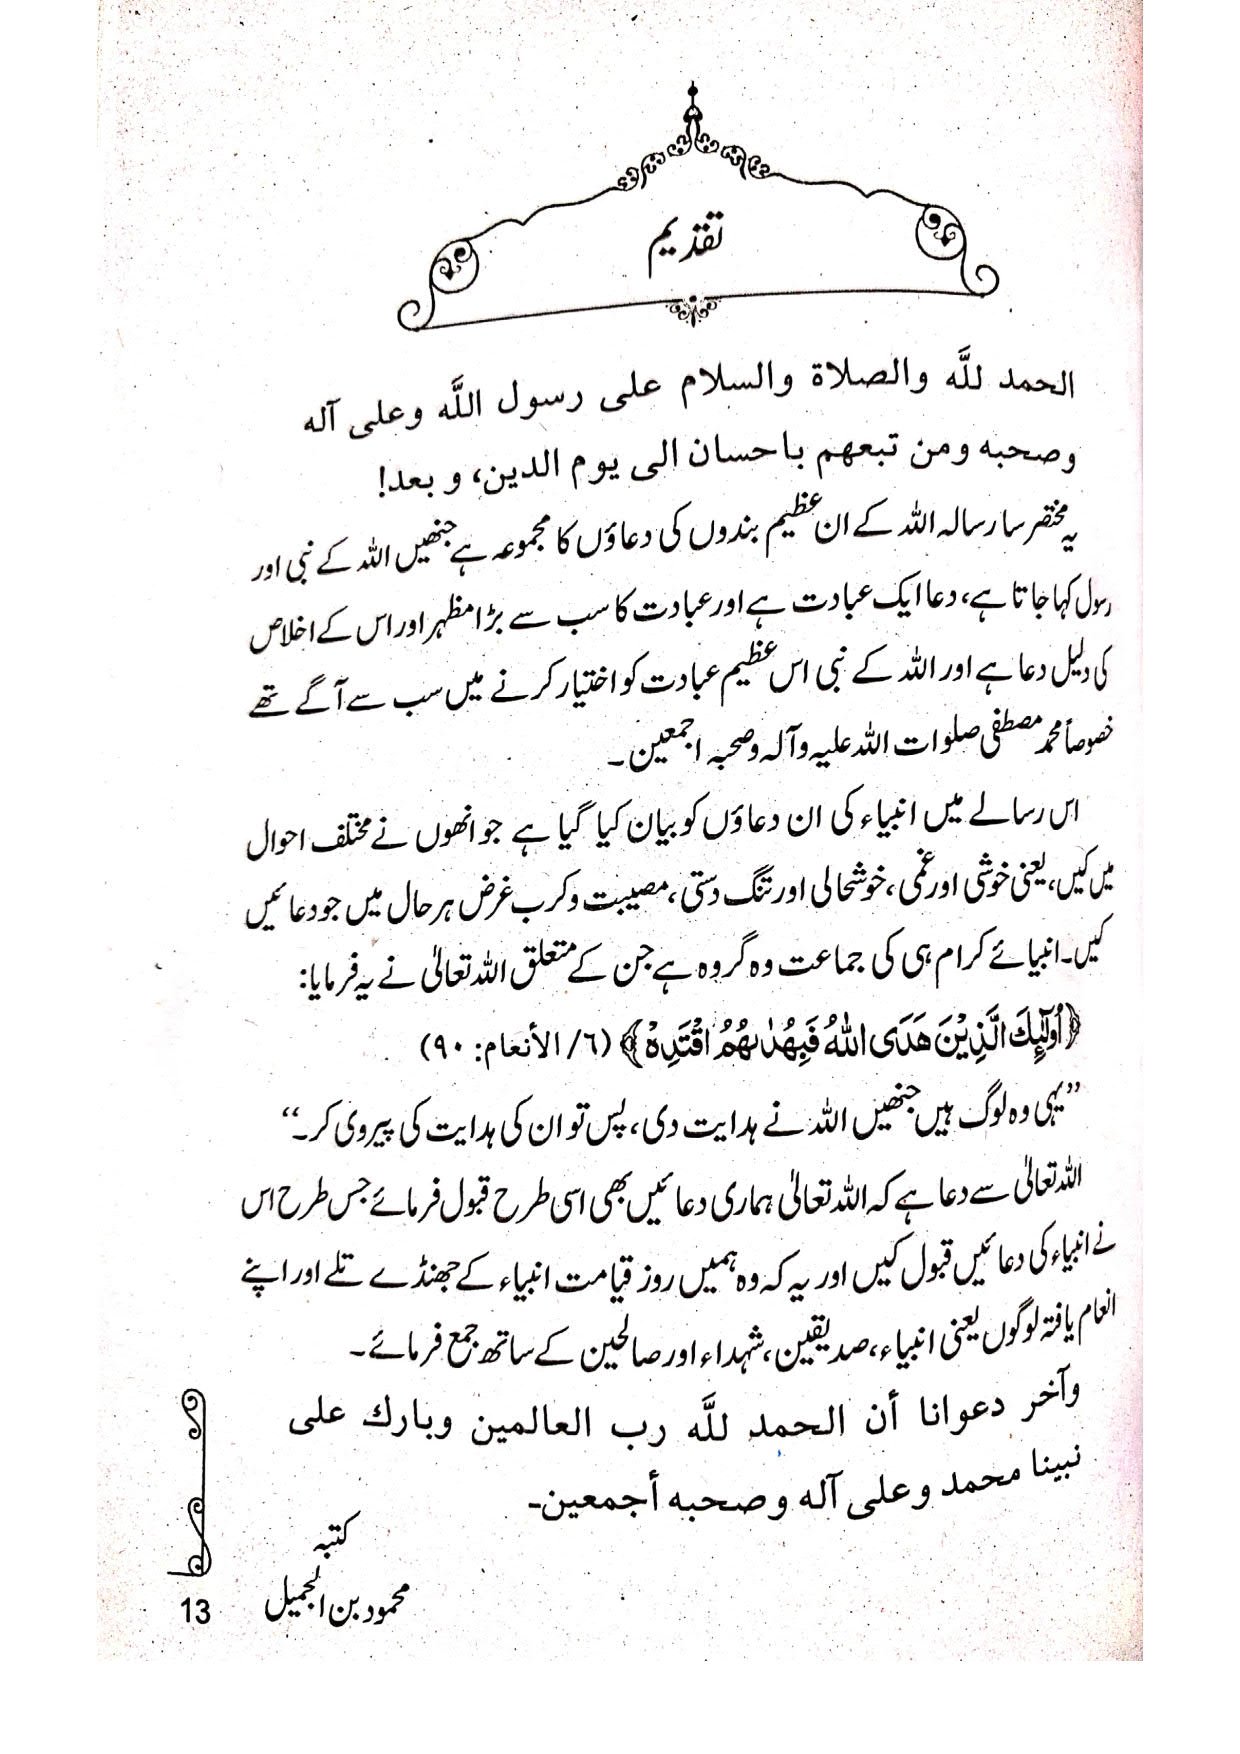 تقدیم
الحمد للَّه والصلاة والسلام علی رسول اللَّه وعلی آله
وصحبه ومن تبعهم باحسان الی یوم الدین، و بعد!
یہ مختصر سا رسالہ اللہ کے ان عظیم بندوں کی دعاؤں کا مجموعہ ہے جنھیں اللہ کے نبی اور
رسول کہا جاتا ہے، دعا ایک عبادت ہے اور عبادت کا سب سے بڑا مظہر اور اس کے اخلاص
کی دلیل دعا ہے اور اللہ کے نبی اس عظیم عبادت کو اختیار کرنے میں سب سے آگے تھے
خصوصاً محمد مصطفی صلوات اللہ علیہ وآلہ وصحبہ اجمعین۔
اس رسالے میں انبیاء کی ان دعاؤں کو بیان کیا گیا ہے جو انھوں نے مختلف احوال
میں کیں، یعنی خوشی اور غمی، خوشحالی اور تنگ دستی، مصیبت وکرب غرض ہر حال میں جو دعائیں
کیں۔ انبیائے کرام ہی کی جماعت وہ گروہ ہے جن کے متعلق اللہ تعالیٰ نے یہ فرمایا:
﴿اُولٰٓئِكَ الَّذِيْنَ هَدَى اللّٰهُ فَبِهُدٰىهُمُ اقْتَدِهْ﴾ (٦/ الأنعام: ٩٠)
”یہی وہ لوگ ہیں جنھیں اللہ نے ہدایت دی، پس تو ان کی ہدایت کی پیروی کر۔“
اللہ تعالیٰ سے دعا ہے کہ اللہ تعالیٰ ہماری دعائیں بھی اسی طرح قبول فرمائے جس طرح اس
نے انبیاء کی دعائیں قبول کیں اور یہ کہ وہ ہمیں روز قیامت انبیاء کے جھنڈے تلے اور اپنے
انعام یافتہ لوگوں یعنی انبیاء، صدیقین، شہداء اور صالحین کے ساتھ جمع فرمائے۔
وآخر دعوانا أن الحمد للَّه رب العالمین وبارك علی
نبینا محمد وعلی آله وصحبه أجمعین۔
کتبہ
محمود بن الجمیل
13